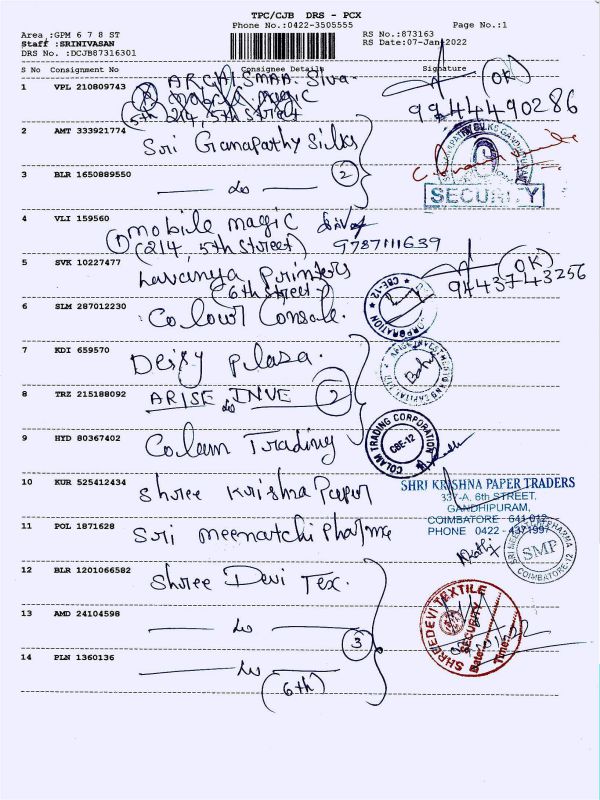 TPC/CJB DRS - PCX
Phone No.:0422-3505555
Page No.:1
Area :GPM 6 7 8 ST
Staff :SRINIVASAN
DRS No. :DCJB87316301
RS No.:873163
RS Date:07-Jan-2022
S No Consignment No Consignee Details Signature
1 VPL 210809743
mobile magic
5th 214, 5th Street
OK
9944490286
2 AMT 333921774 Sri Ganapathy Silks
SECURITY
3 BLR 1650889550 do 2
4 VLI 159560 mobile magic
(214, 5th Street) 9787111639
5 SVK 10227477 Lavanya Printers
(6th Street) (OK)
9443743256
6 SLM 287012230 Colour Console.
CBE-12
CORPORATION
7 KDI 659570 Deijy plaza.
8 TRZ 215188092 ARISE INVE
do 2
9 HYD 80367402 Colam Trading
COLAM TRADING CORPORATION
CBE-12
10 KUR 525412434 Shree Krishna Paper
SHRI KRISHNA PAPER TRADERS
337-A, 6th STREET.
GANDHIPURAM,
COIMBATORE - 641 012
PHONE 0422 - 4371997
11 POL 1871628 Sri meenatchi Pharma
SRI MEENATCHI PHARMA
SMP
COIMBATORE-12
12 BLR 1201066582 Shree Devi Tex.
SHREEDEVI TEXTILE
SECURITY
Date:
Time:
13 AMD 24104598 do
3
14 PLN 1360136 do
(6th)